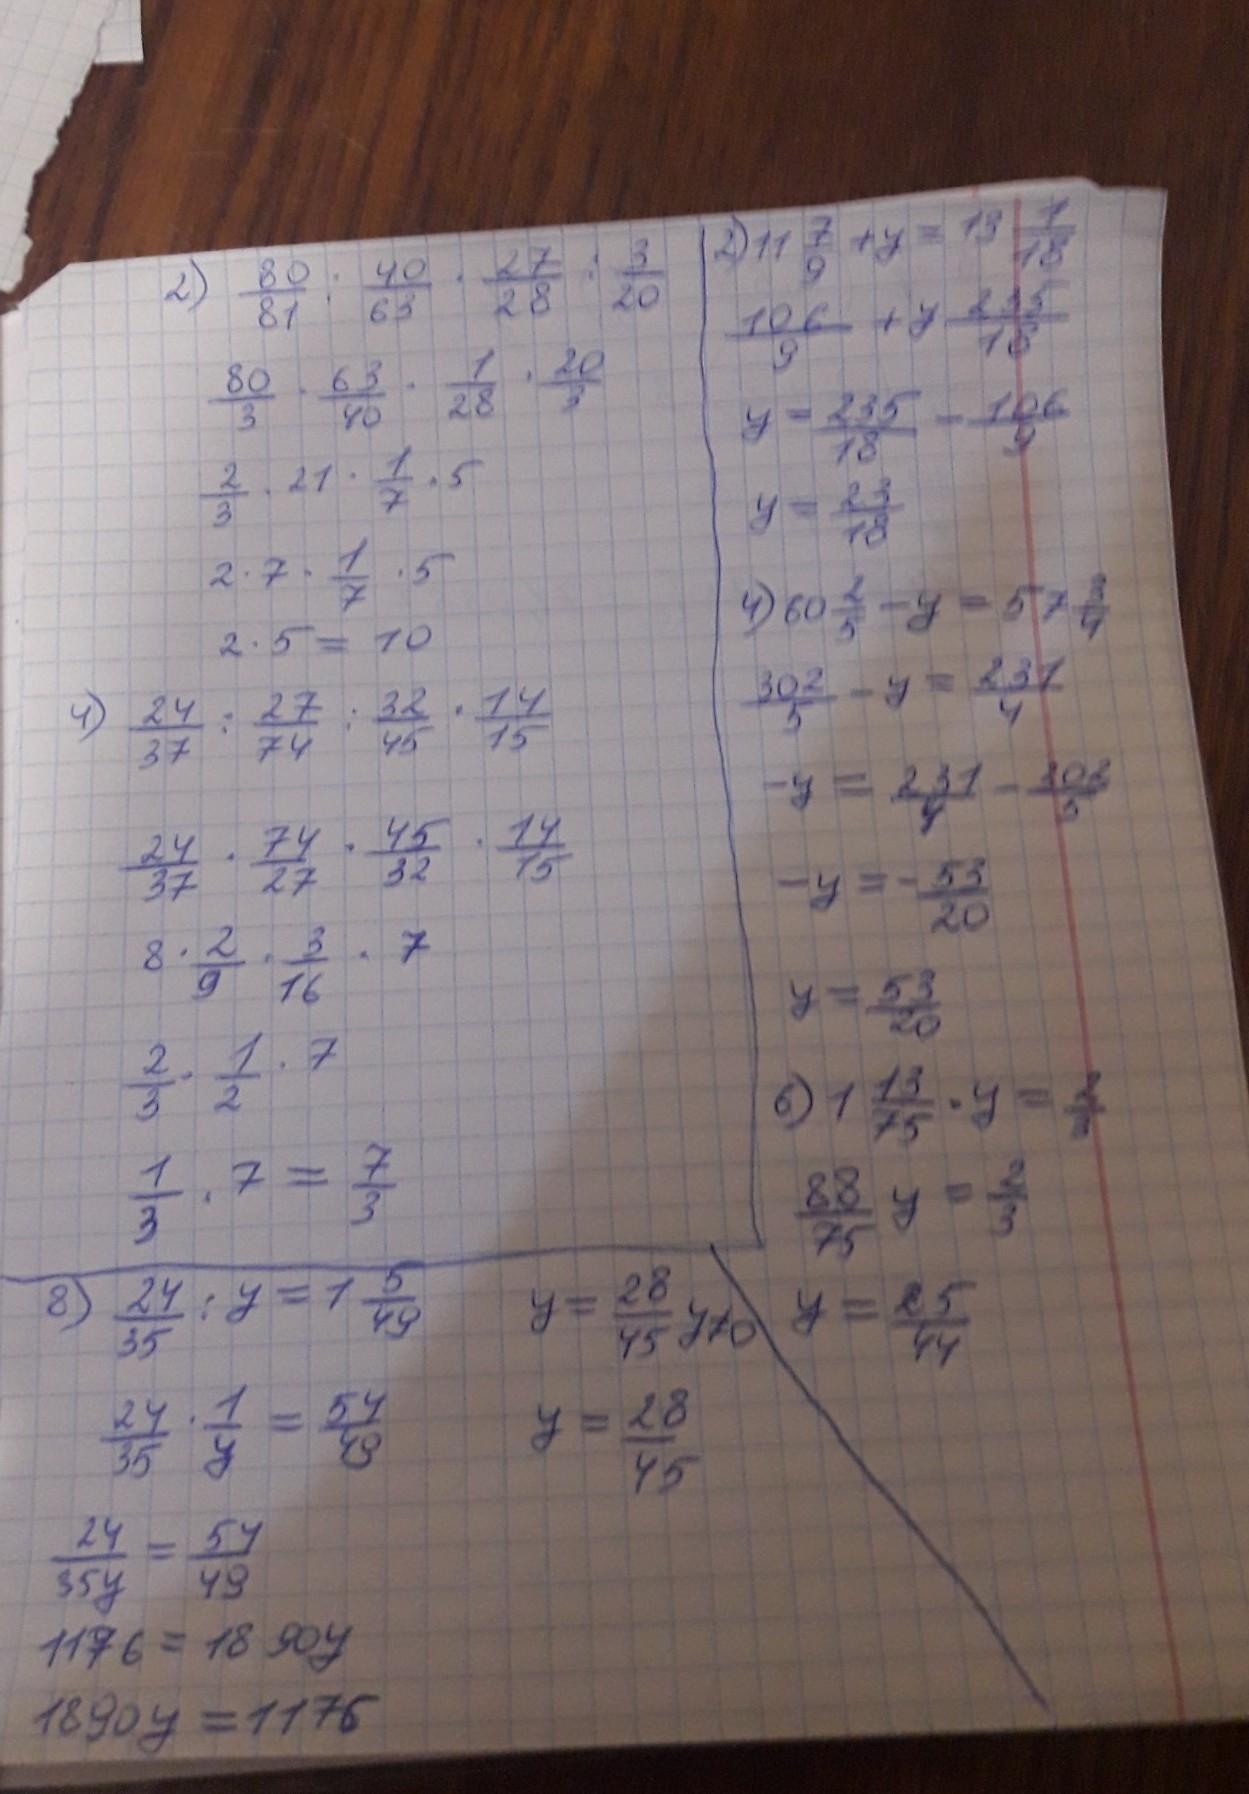 2) 80/81 : 40/63 · 27/28 : 3/20
80/3 · 63/40 · 1/28 · 20/3
2/3 · 21 · 1/7 · 5
2 · 7 · 1/7 · 5
2 · 5 = 10
4) 24/37 : 27/74 : 32/45 · 14/15
24/37 · 74/27 · 45/32 · 14/15
8 · 2/9 · 3/16 · 7
2/3 · 1/2 · 7
1/3 · 7 = 7/3
2) 11 7/9 + y = 13 1/18
106/9 + y 235/18
y = 235/18 - 106/9
y = 23/18
4) 60 2/5 - y = 57 3/4
302/5 - y = 231/4
-y = 231/4 - 302/5
-y = - 53/20
y = 53/20
6) 1 13/75 · y = 2/3
88/75 y = 2/3
y = 25/44
8) 24/35 : y = 1 5/49
24/35 · 1/y = 54/49
24/35y = 54/49
1176 = 1890y
1890y = 1176
y = 28/45 y≠0
y = 28/45